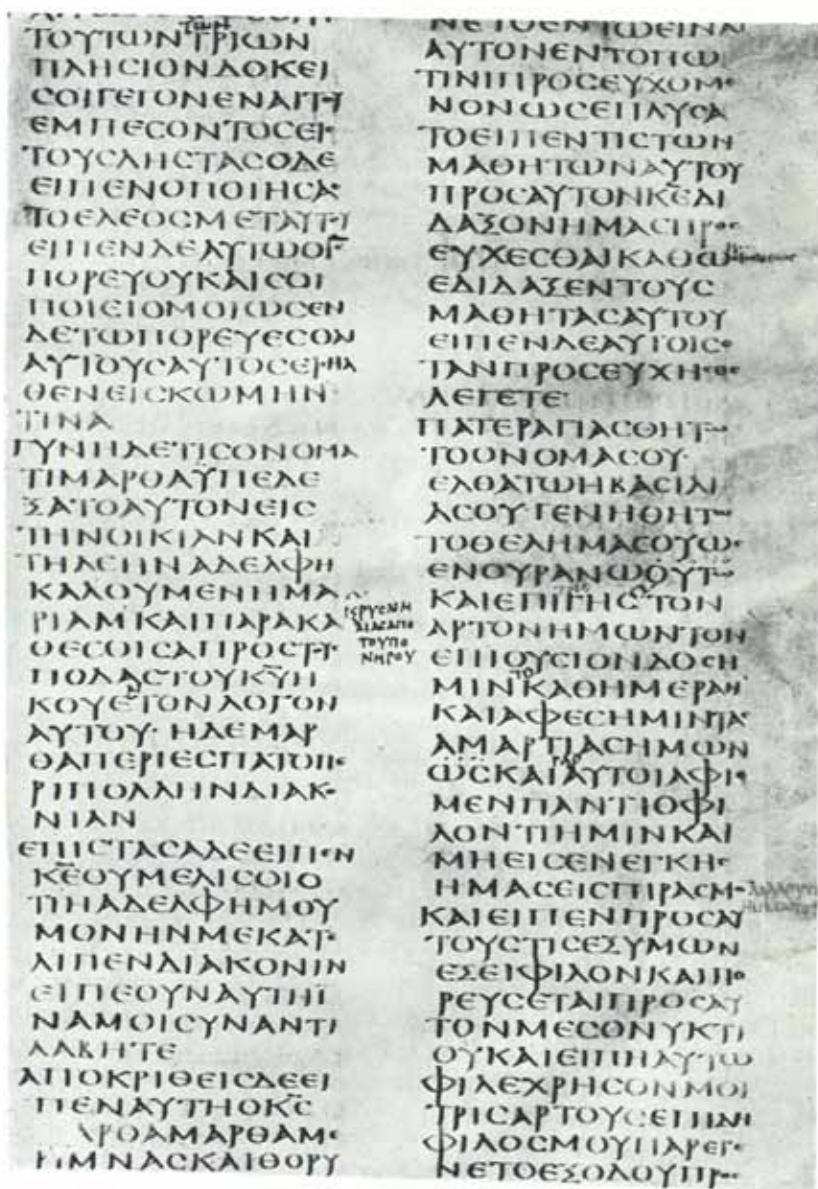 ΤΟΥΤΩΝΤΡΙΩΝ
ΠΛΗCΙΟΝΔΟΚΕΙ
CΟΙΓΕΓΟΝΕΝΑΙΤΟΥ
ΕΜΠΕCΟΝΤΟCΕΙC
ΤΟΥCΛΗCΤΑCΟΔΕ
ΕΙΠΕΝΟΠΟΙΗCΑC
ΤΟΕΛΕΟCΜΕΤΑΥΤΟΥ
ΕΙΠΕΝΔΕΑΥΤΩΟΙ̅C̅
ΠΟΡΕΥΟΥΚΑΙCΟΙ
ΠΟΙΕΙΟΜΟΙΩCΕΝ
ΔΕΤΩΠΟΡΕΥΕCΘΑΙ
ΑΥΤΟΥCΑΥΤΟCΕΙCΗΛ
ΘΕΝΕΙCΚΩΜΗΝ
ΤΙΝΑ
ΓΥΝΗΔΕΤΙCΟΝΟΜΑ
ΤΙΜΑΡΘΑΫΠΕΔΕ
ΞΑΤΟΑΥΤΟΝΕΙC
ΤΗΝΟΙΚΙΑΝΚΑΙ
ΤΗΔΕΗΝΑΔΕΛΦΗ
ΚΑΛΟΥΜΕΝΗΜΑ
ΡΙΑΜΚΑΙΠΑΡΑΚΑ
ΘΕCΘΙCΑΠΡΟCΤΟΥ
ΠΟΔΑCΤΟΥΚ̅Υ̅Η
ΚΟΥΕΤΟΝΛΟΓΟΝ
ΑΥΤΟΥ· ΗΔΕΜΑΡ
ΘΑΠΕΡΙΕCΠΑΤΟΠΕ
ΡΙΠΟΛΛΗΝΔΙΑΚΟ
ΝΙΑΝ
ΕΠΙCΤΑCΑΔΕΕΙΠΕΝ
Κ̅Ε̅ΟΥΜΕΛΙCΟΙΟ
ΤΙΗΑΔΕΛΦΗΜΟΥ
ΜΟΝΗΝΜΕΚΑΤΕ
ΛΙΠΕΝΔΙΑΚΟΝΙΝ
ΕΙΠΕΟΥΝΑΥΤΗΪ
ΝΑΜΟΙCΥΝΑΝΤΙ
ΛΑΒΗΤΕ
ΑΠΟΚΡΙΘΕΙCΔΕΕΙ
ΠΕΝΑΥΤΗΟΚ̅C̅
ΡΘΑΜΑΡΘΑΜΕ
ΡΙΜΝΑCΚΑΙΘΟΡΥ
ΝΕΤΟΕΝΤΩΕΙΝΑΙ
ΑΥΤΟΝΕΝΤΟΠΩ
ΤΙΝΙΠΡΟCΕΥΧΟΜΕ
ΝΟΝΩCΕΠΑΥCΑ
ΤΟΕΙΠΕΝΤΙCΤΩΝ
ΜΑΘΗΤΩΝΑΥΤΟΥ
ΠΡΟCΑΥΤΟΝΚ̅Ε̅ΔΙ
ΔΑΞΟΝΗΜΑCΠΡΟC
ΕΥΧΕCΘΑΙΚΑΘΩ
ΕΔΙΔΑΞΕΝΤΟΥC
ΜΑΘΗΤΑCΑΥΤΟΥ
ΕΙΠΕΝΔΕΑΥΤΟΙCΟ
ΤΑΝΠΡΟCΕΥΧΗCΘΕ
ΛΕΓΕΤΕ
ΠΑΤΕΡΑΓΙΑCΘΗΤΩ
ΤΟΟΝΟΜΑCΟΥ·
ΕΛΘΑΤΩΗΒΑCΙΛΙ
ΑCΟΥ·ΓΕΝΗΘΗΤΩ
ΤΟΘΕΛΗΜΑCΟΥΩC
ΕΝΟΥΡΑΝΩΟΥΤΩ
ΚΑΙΕΠΙΓΗCΤΟΝ
ΑΡΤΟΝΗΜΩΝΤΟΝ
ΕΠΙΟΥCΙΟΝΔΟCΗ
ΤΟ
ΜΙΝΚΑΘΗΜΕΡΑΝ
ΚΑΙΑΦΕCΗΜΙΝΤΑC
ΑΜΑΡΤΙΑCΗΜΩΝ
ΓΑΡ
ΩCΚΑΙΑΥΤΟΙΑΦΙΟ
ΜΕΝΠΑΝΤΙΟΦΙ
ΛΟΝΤΙΗΜΙΝΚΑΙ
ΜΗΕΙCΕΝΕΓΚΗC
ΗΜΑCΕΙCΠΙΡΑCΜΟ
ΚΑΙΕΙΠΕΝΠΡΟCΑΥ
ΤΟΥCΤΙCΕΞΥΜΩΝ
ΕΞΕΙΦΙΛΟΝΚΑΙΠΟ
ΡΕΥCΕΤΑΙΠΡΟCΑΥ
ΤΟΝΜΕCΟΝΥΚΤΙ
ΟΥΚΑΙΕΙΠΗΑΥΤΩ
ΦΙΛΕΧΡΗCΟΝΜΟΙ
ΤΡΙCΑΡΤΟΥCΕΠΙΔΗ
ΦΙΛΟCΜΟΥΠΑΡΕΓΕ
ΝΕΤΟΕΞΟΔΟΥΠΡΟC
ΡΥCΑΙΗ
ΜΑCΑΠΟ
ΤΟΥΠΟ
ΝΗΡΟΥ